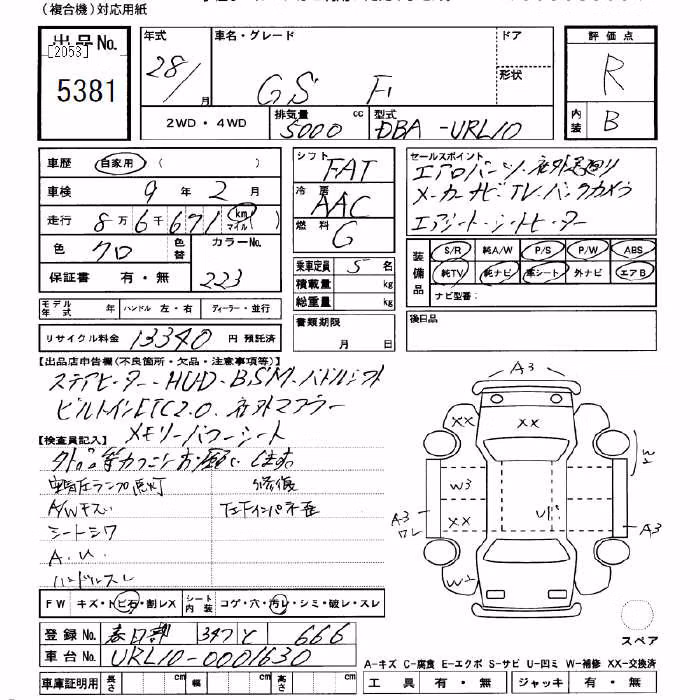 (複合機)対応用紙
出品No.
[2053]
5381
年式 28/ 月
車名・グレード GS F
ドア
形状
評価点 R
内装 B
2WD・4WD
排気量 5000 cc
型式 DBA-URL10
車歴 自家用 ( )
車検 9年 2月
走行 8万6千671 km マイル ( )
色 クロ 色替 カラーNo. 223
保証書 有・無
モデル年式 年 ハンドル 左・右 ディーラー・並行
リサイクル料金 13340 円 預託済
シフト FAT
冷房 AAC
燃料 G
乗車定員 5 名
積載量 kg
総重量 kg
書類期限 月 日
セールスポイント
エアロバンパー・社外足廻り
メーカーナビ・TV・バックカメラ
エアシート・シートヒーター
装備品 S/R 純A/W P/S P/W ABS
純TV 純ナビ 革シート 外ナビ エアB
ナビ型番:
後日品
【出品店申告欄(不良箇所・欠品・注意事項等)】
ステアヒーター・HUD・BSM・パドルシフト
ビルトインETC2.0・社外マフラー
メモリーパワーシート
【検査員記入】
空気圧ランプ点灯 修復
A/Wキズ
シートシワ
A.U.
ハンドルスレ
FW キズ・トビ石・割レX シート内装 コゲ・穴・汚レ・シミ・破レ・スレ
登録No. 春日部 347 と 666
車台No. URL10-0001630
車庫証明用 長さ cm 幅 cm 高さ cm
A3
XX XX
W2
W3
XX
A3
ワレ
A3
W2
スペア
A-キズ C-腐食 E-エクボ S-サビ U-凹ミ W-補修 XX-交換済
工具 有・無 ジャッキ 有・無